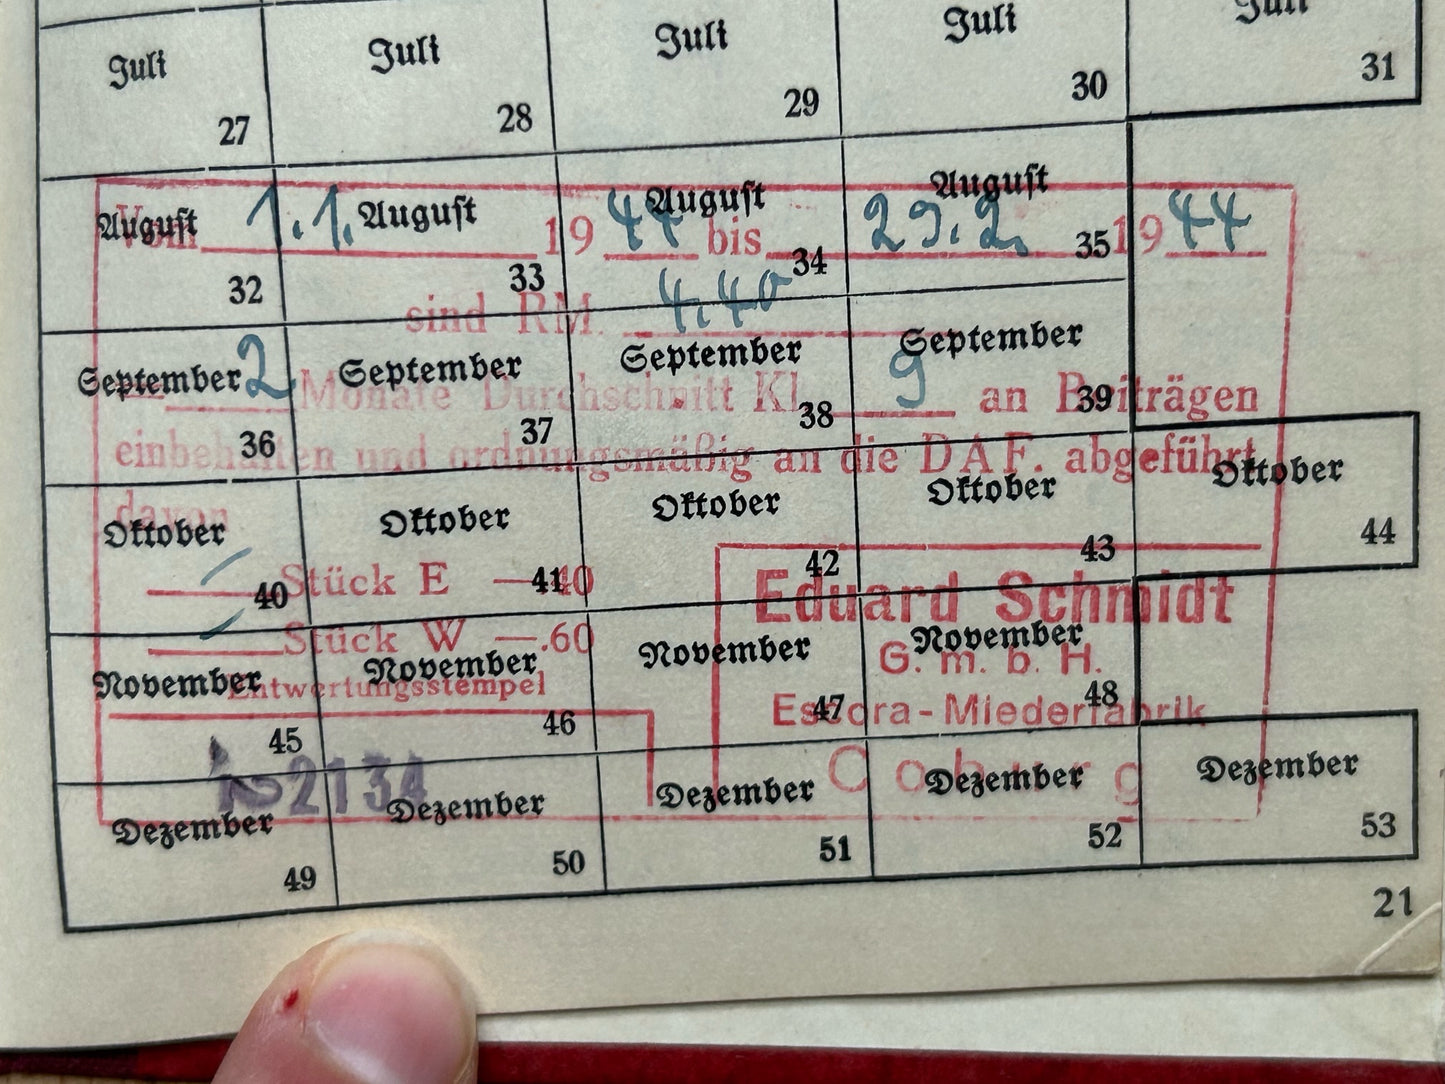 Juli Juli Juli Juli Juli
27 28 29 30 31
August August August August
32 33 34 35
September September September September
36 37 38 39
Oktober Oktober Oktober Oktober Oktober
40 41 42 43 44
November November November November
45 46 47 48
Dezember Dezember Dezember Dezember Dezember
49 50 51 52 53
21
Vom 1.1. 1944 bis 29.2. 1944
sind RM. 4.40
2 Monate Durchschnitt Kl. 9 an Beiträgen
einbehalten und ordnungsmäßig an die DAF. abgeführt
davon
Stück E —.40
Stück W —.60
Entwertungsstempel
2134
Eduard Schmidt
G. m. b. H.
Escora-Miederfabrik
Coburg